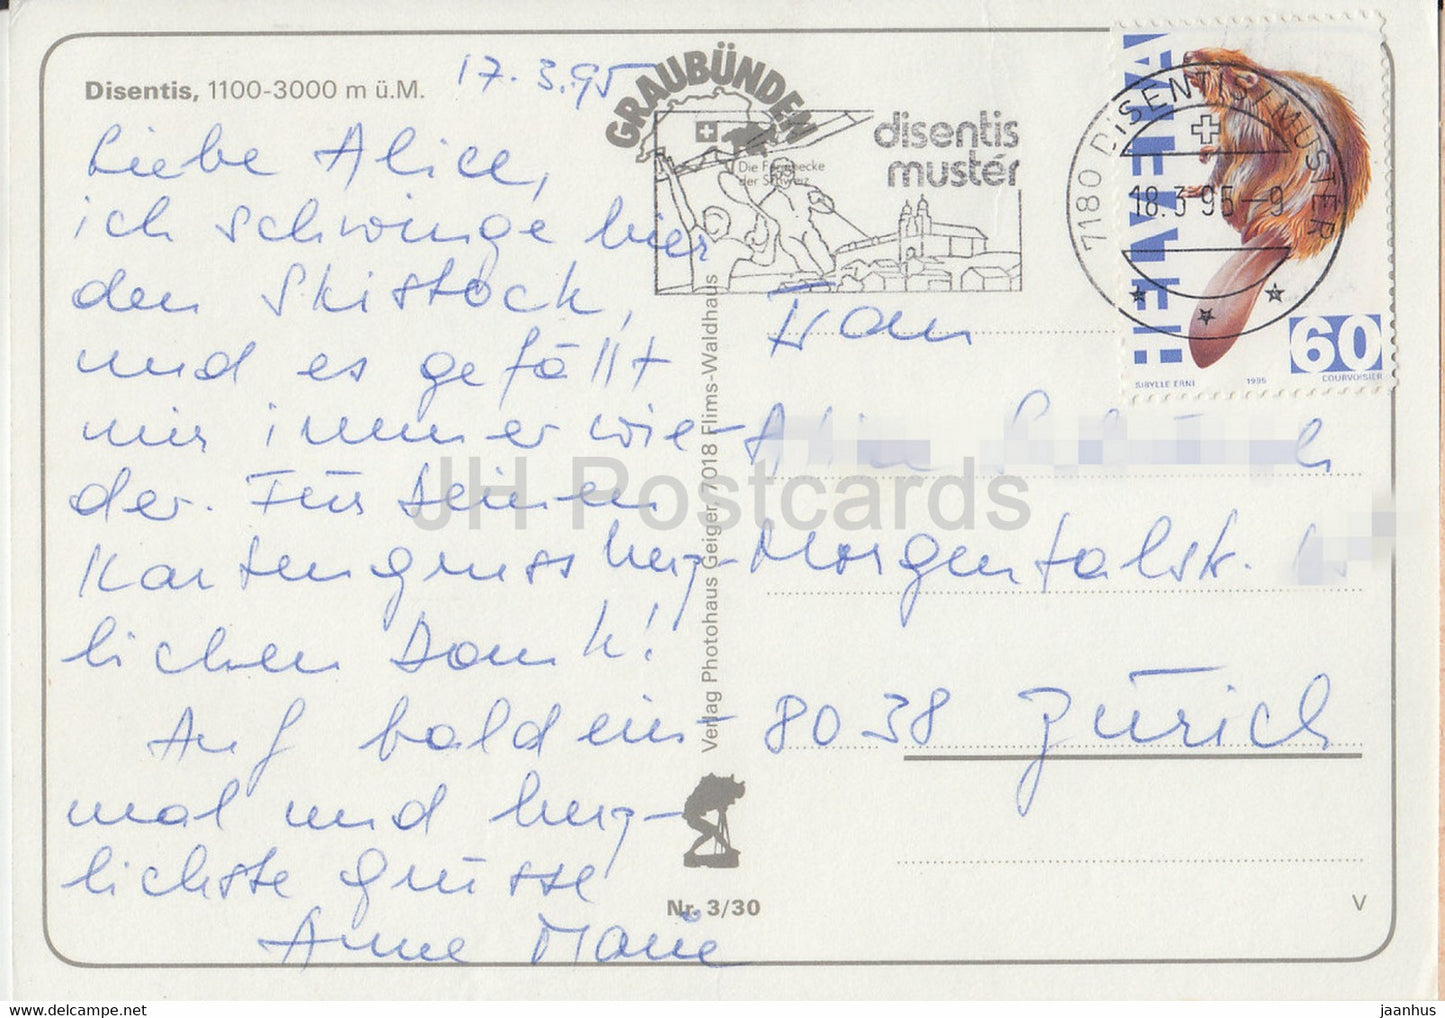 Disentis, 1100-3000 m ü.M.
17.3.95
GRAUBÜNDEN
Die Ferienecke
der Schweiz
disentis
mustér
7180 DISENTIS/MUSTÉR
18.3.95-9
HELVETIA
60
SIBYLLE ERNI 1995 COURVOISIER
Liebe Alice,
ich schwinge hier
den Skistock,
und es gefällt
mir immer wie-
der. Für Deinen
Kartengruss herz-
lichen Dank!
Auf bald ein-
mal und herz-
lichste Grüsse
Anne Marie
Frau
Morgentalstr.
8038 Zürich
Verlag Photohaus Geiger, 7018 Flims-Waldhaus
Nr. 3/30
V
JH Postcards
HipPostcard.com
jaanhus